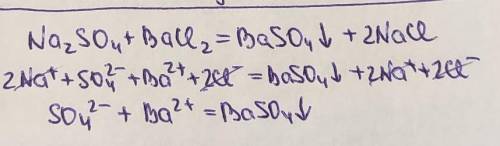 Na₂SO₄ + BaCl₂ = BaSO₄↓ + 2NaCl
2Na⁺ + SO₄²⁻ + Ba²⁺ + 2Cl⁻ = BaSO₄↓ + 2Na⁺ + 2Cl⁻
SO₄²⁻ + Ba²⁺ = BaSO₄↓